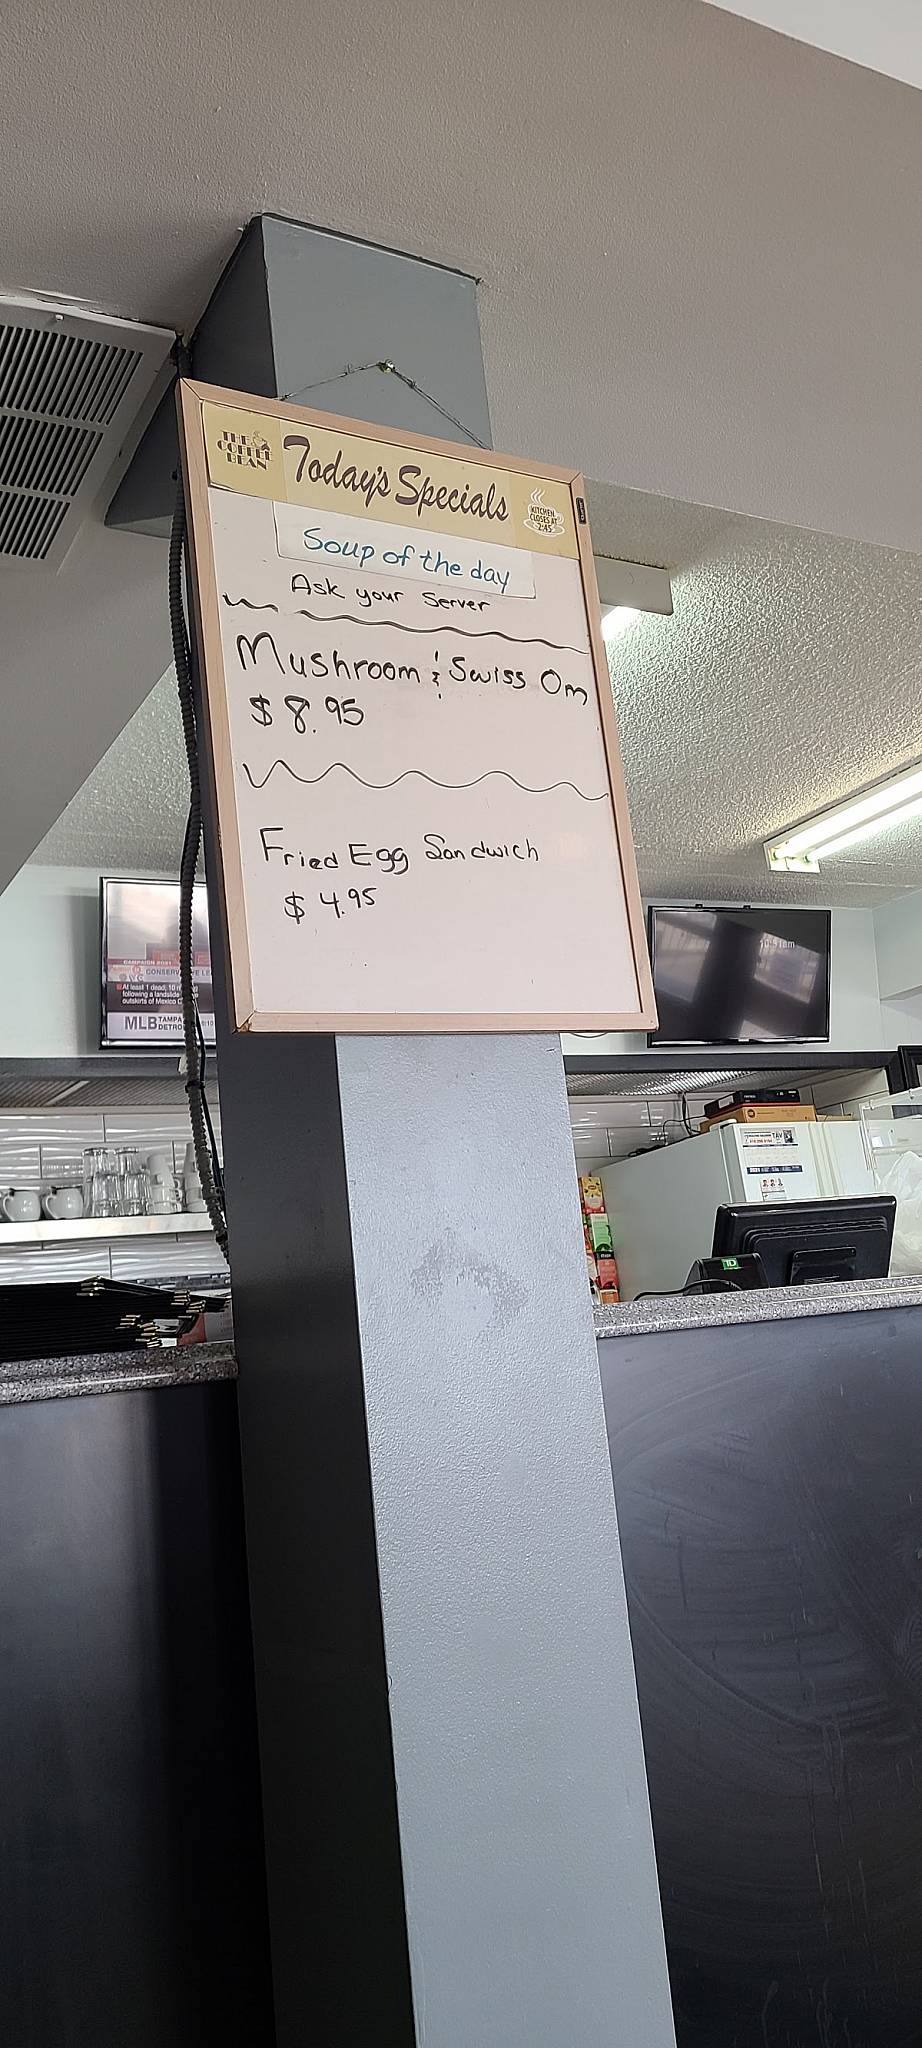 THE
COFFEE
BEAN
Today's Specials
KITCHEN
CLOSES AT
2:45
Soup of the day
Ask your Server
Mushroom & Swiss Om
$8.95
Fried Egg Sandwich
$4.95
CAMPAIGN 2021
CONSERV
E LE
At least 1 dead, 10
following a landslide
outskirts of Mexico
MLB
TAMPA
DETRO
TAV
2021
TD